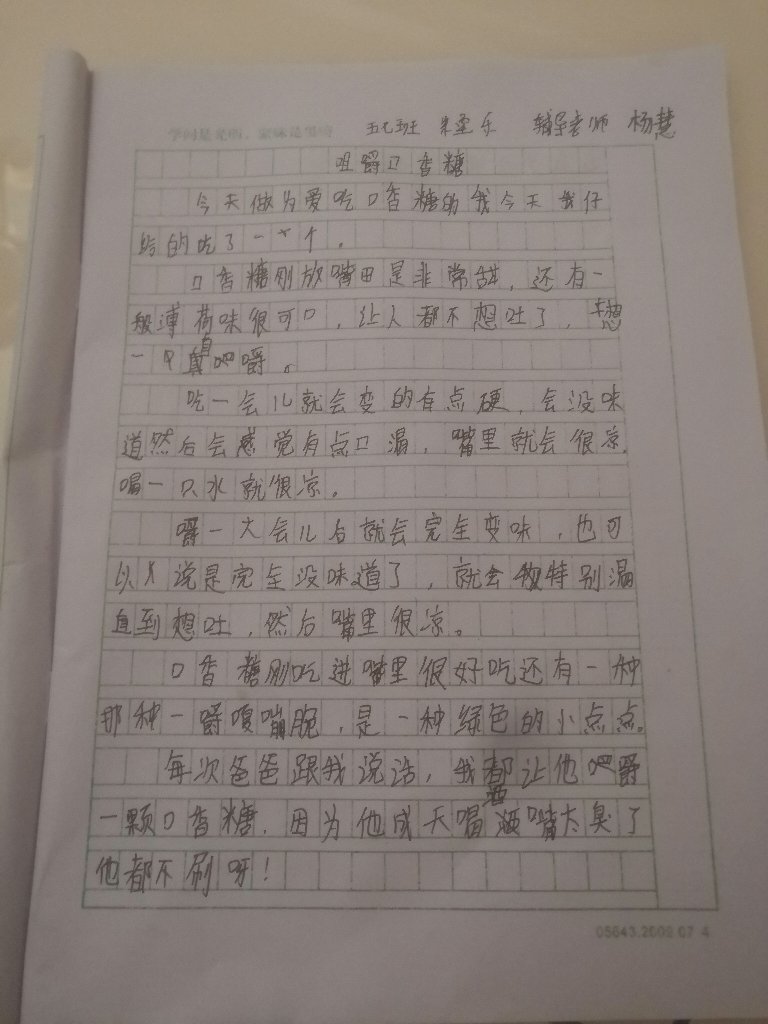 学问是光明，蒙昧是黑暗 五七班 朱 乐 辅导老师 杨慧
咀嚼口香糖
今天做为爱吃口香糖的我今天我仔
的吃了一个。
口香糖刚放嘴里是非常甜，还有一
般薄荷味很可口，让人都不想吐了，想
一口咀嚼。
吃一会儿就会变的有点硬，会没味
道然后会感觉有点口漏，嘴里就会很凉，
喝一口水就很凉。
嚼一大会儿后就会完全变味，也可
以说是完全没味道了，就会特别漏
直到想吐，然后嘴里很凉。
口香糖刚吃进嘴里很好吃还有一种
那种一嚼嘎嘣脆，是一种绿色的小点点。
每次爸爸跟我说话，我都要让他咀嚼
一颗口香糖，因为他成天喝酒嘴太臭了
他都不刷呀！
05643.2009.07 4